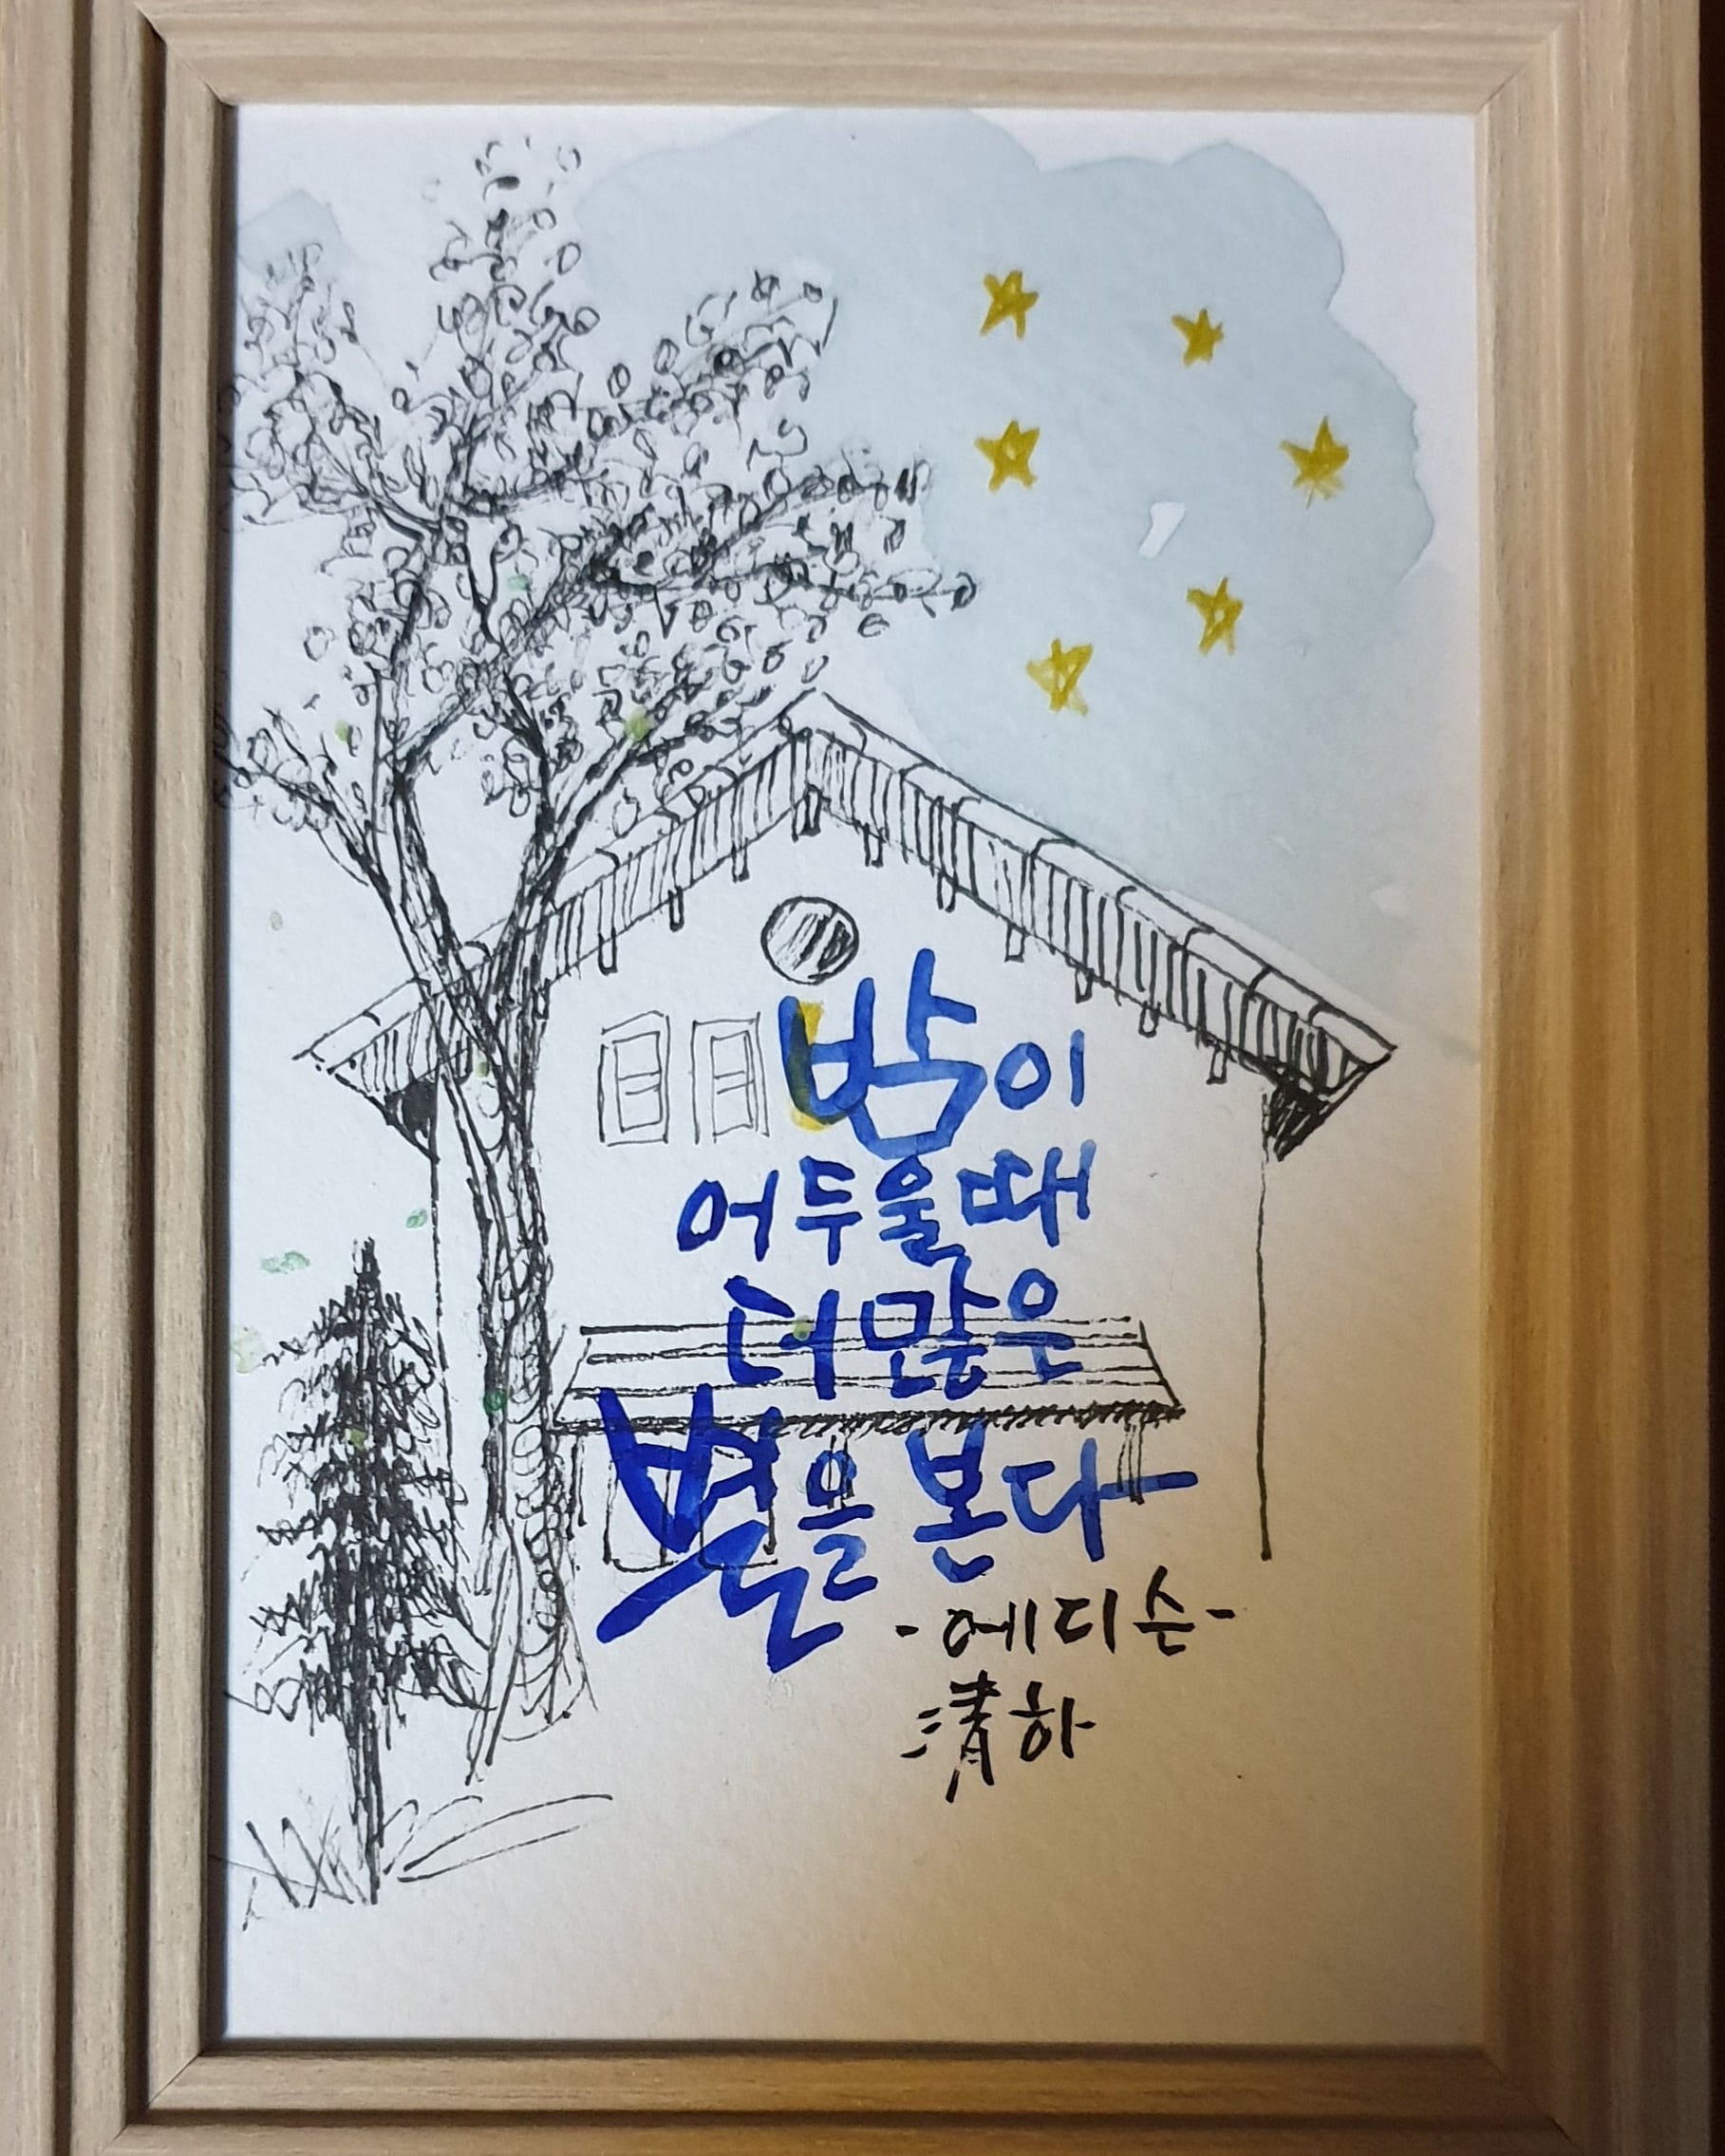 밤이
어두울때
더많은
별을 본다
-에디슨-
淸하